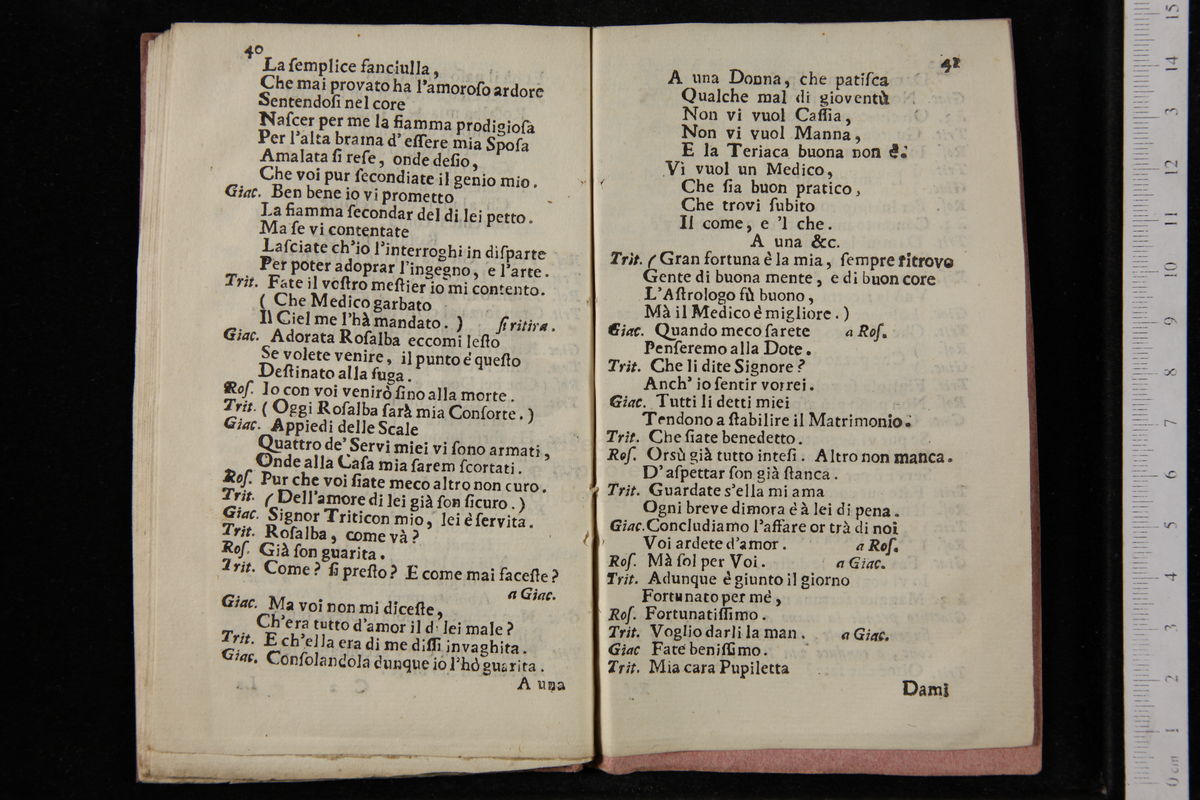 40
La ſemplice fanciulla,
Che mai provato ha l'amoroſo ardore
Sentendoſi nel core
Naſcer per me la fiamma prodigioſa
Per l'alta brama d' eſſere mia Spoſa
Amalata ſi reſe, onde deſio,
Che voi pur ſecondiate il genio mio.
Giac. Ben bene io vi prometto
La fiamma ſecondar del di lei petto.
Ma ſe vi contentate
Laſciate ch'io l'interroghi in diſparte
Per poter adoprar l'ingegno, e l'arte.
Trit. Fate il voſtro meſtier io mi contento.
( Che Medico garbato
Il Ciel me l'hà mandato. ) ſi ritira.
Giac. Adorata Roſalba eccomi leſto
Se volete venire, il punto è queſto
Deſtinato alla fuga.
Roſ. Io con voi venirò ſino alla morte.
Trit. ( Oggi Roſalba ſarà mia Conſorte. )
Giac. Appiedi delle Scale
Quattro de' Servi miei vi ſono armati,
Onde alla Caſa mia ſarem ſcortati.
Roſ. Pur che voi ſiate meco altro non curo.
Trit. ( Dell'amore di lei già ſon ſicuro. )
Giac. Signor Triticon mio, lei è ſervita.
Trit. Roſalba, come và?
Roſ. Già ſon guarita.
Trit. Come? ſi preſto? E come mai faceſte?
a Giac.
Giac. Ma voi non mi diceſte,
Ch'era tutto d'amor il di lei male?
Trit. E ch'ella era di me diſſi invaghita.
Giac. Conſolandola dunque io l'hò guarita.
A una
41
A una Donna, che patiſca
Qualche mal di gioventù
Non vi vuol Caſſia,
Non vi vuol Manna,
E la Teriaca buona non è.
Vi vuol un Medico,
Che ſia buon pratico,
Che trovi ſubito
Il come, e 'l che.
A una &c.
Trit. ( Gran fortuna è la mia, ſempre ritrovo
Gente di buona mente, e di buon core
L'Aſtrologo fù buono,
Mà il Medico è migliore. )
Giac. Quando meco ſarete a Roſ.
Penſeremo alla Dote.
Trit. Che li dite Signore?
Anch' io ſentir vorrei.
Giac. Tutti li detti miei
Tendono a ſtabilire il Matrimonio.
Trit. Che ſiate benedetto.
Roſ. Orsù già tutto inteſi. Altro non manca.
D' aſpettar ſon già ſtanca.
Trit. Guardate s'ella mi ama
Ogni breve dimora è à lei di pena.
Giac. Concludiamo l'affare or trà di noi
Voi ardete d'amor. a Roſ.
Roſ. Mà ſol per Voi. a Giac.
Trit. Adunque è giunto il giorno
Fortunato per mè,
Roſ. Fortunatiſſimo.
Trit. Voglio darli la man. a Giac.
Giac Fate beniſſimo.
Trit. Mia cara Pupiletta
Dami